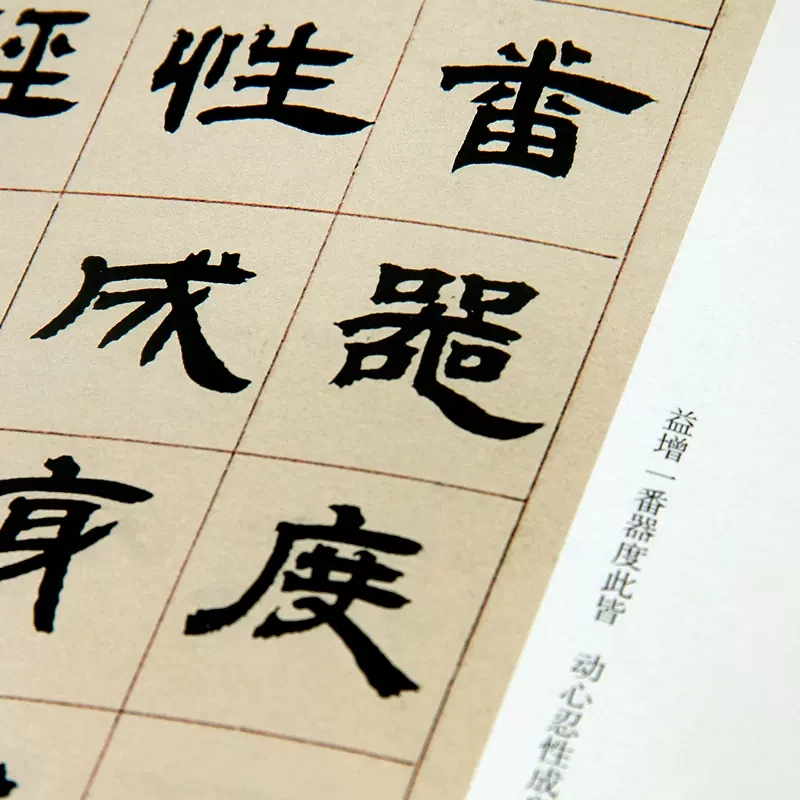 番器度
性成身
益增一番器度此皆 动心忍性成